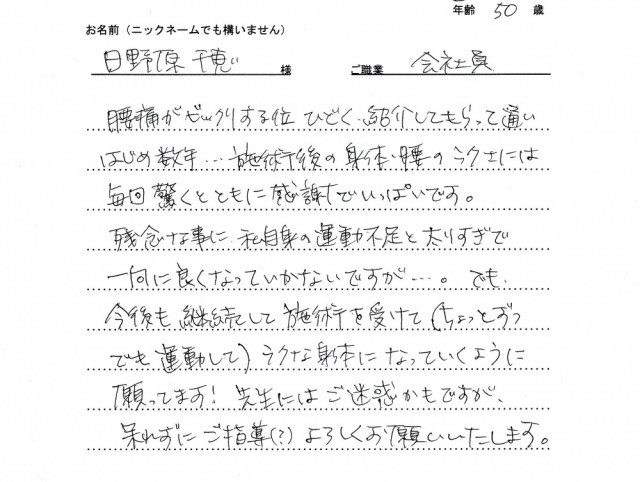 年齢 50 歳
お名前（ニックネームでも構いません）
日野原 千恵 様 ご職業 会社員
腰痛がビックリする位 ひどく、紹介してもらって通い
はじめ数年…施術後の身体・腰のラクさには
毎回驚くとともに感謝でいっぱいです。
残念な事に、私自身の運動不足と太りすぎで
一向に良くなっていかないですが…。でも、
今後も継続して施術を受けて（ちょっとずつ
でも運動して）ラクな身体になっていくように
願ってます！先生にはご迷惑かもですが、
呆れずにご指導(?)よろしくお願いいたします。